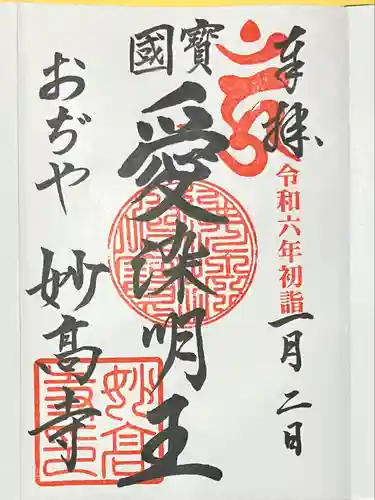 奉拝
令和六年初詣
一月二日
國寳
愛染明王
おぢや
妙高寺